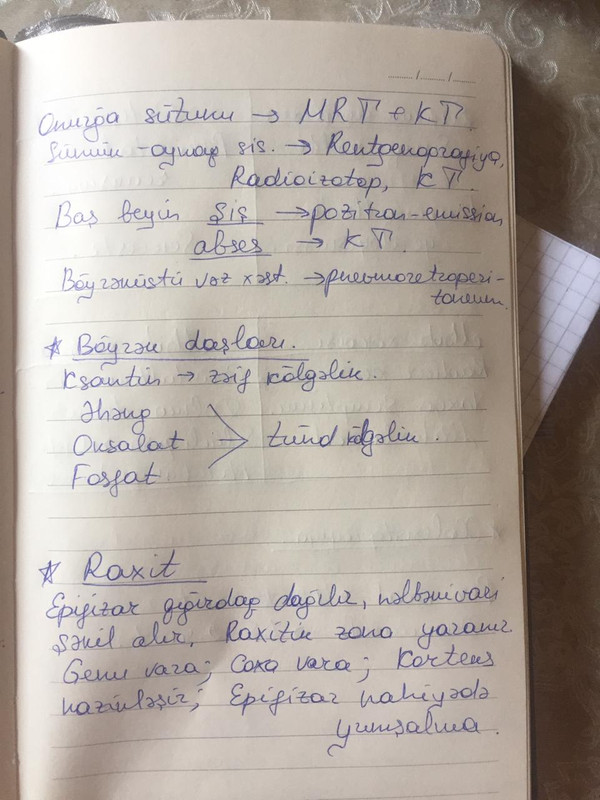 Onurğa sütunu → MRT + KT
Sümük-oynaq sis. → Rentgenoqrafiya,
Radioizotop, KT
Baş beyin şiş → pozitron-emission
abses → KT
Böyrəküstü vəz xəst. → pnevmoretroperi-
toneum.
* Böyrək daşları.
Ksantin → zəif kölgəlik.
Əhəng
Oksalat > tünd kölgəlik.
Fosfat
* Raxit
Epifizar qığırdaq dağılır, nəlbəkivari
şəkil alır, Raxitik zona yaranır.
Genu vara; Coxa vara; Korteks
nazikləşir; Epifizar nahiyədə
yumşalma.